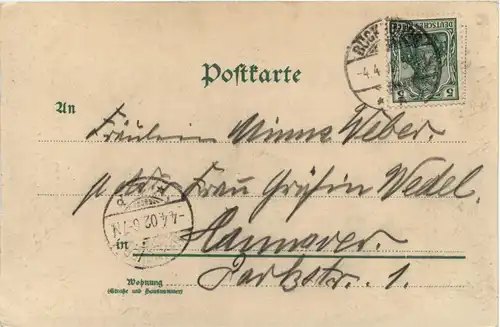 BÜCK
-4.4.
DEUTSCHES
5 5
Postkarte
An
Fräulein Minna Weber.
Frau Gräfin Wedel.
-4.4.02.6-7N
in Hannover.
Parkstr. 1.
Wohnung
(Straße und Hausnummer)